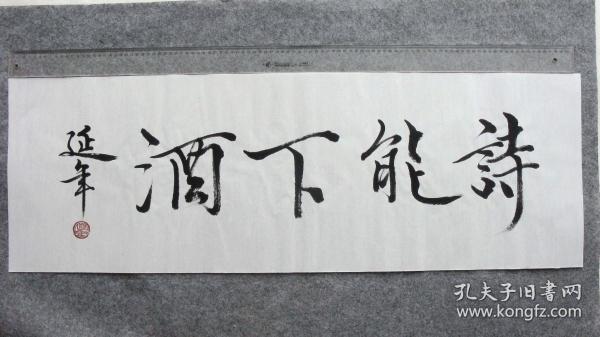 詩能下酒
延年
孔夫子旧書网
www.kongfz.com